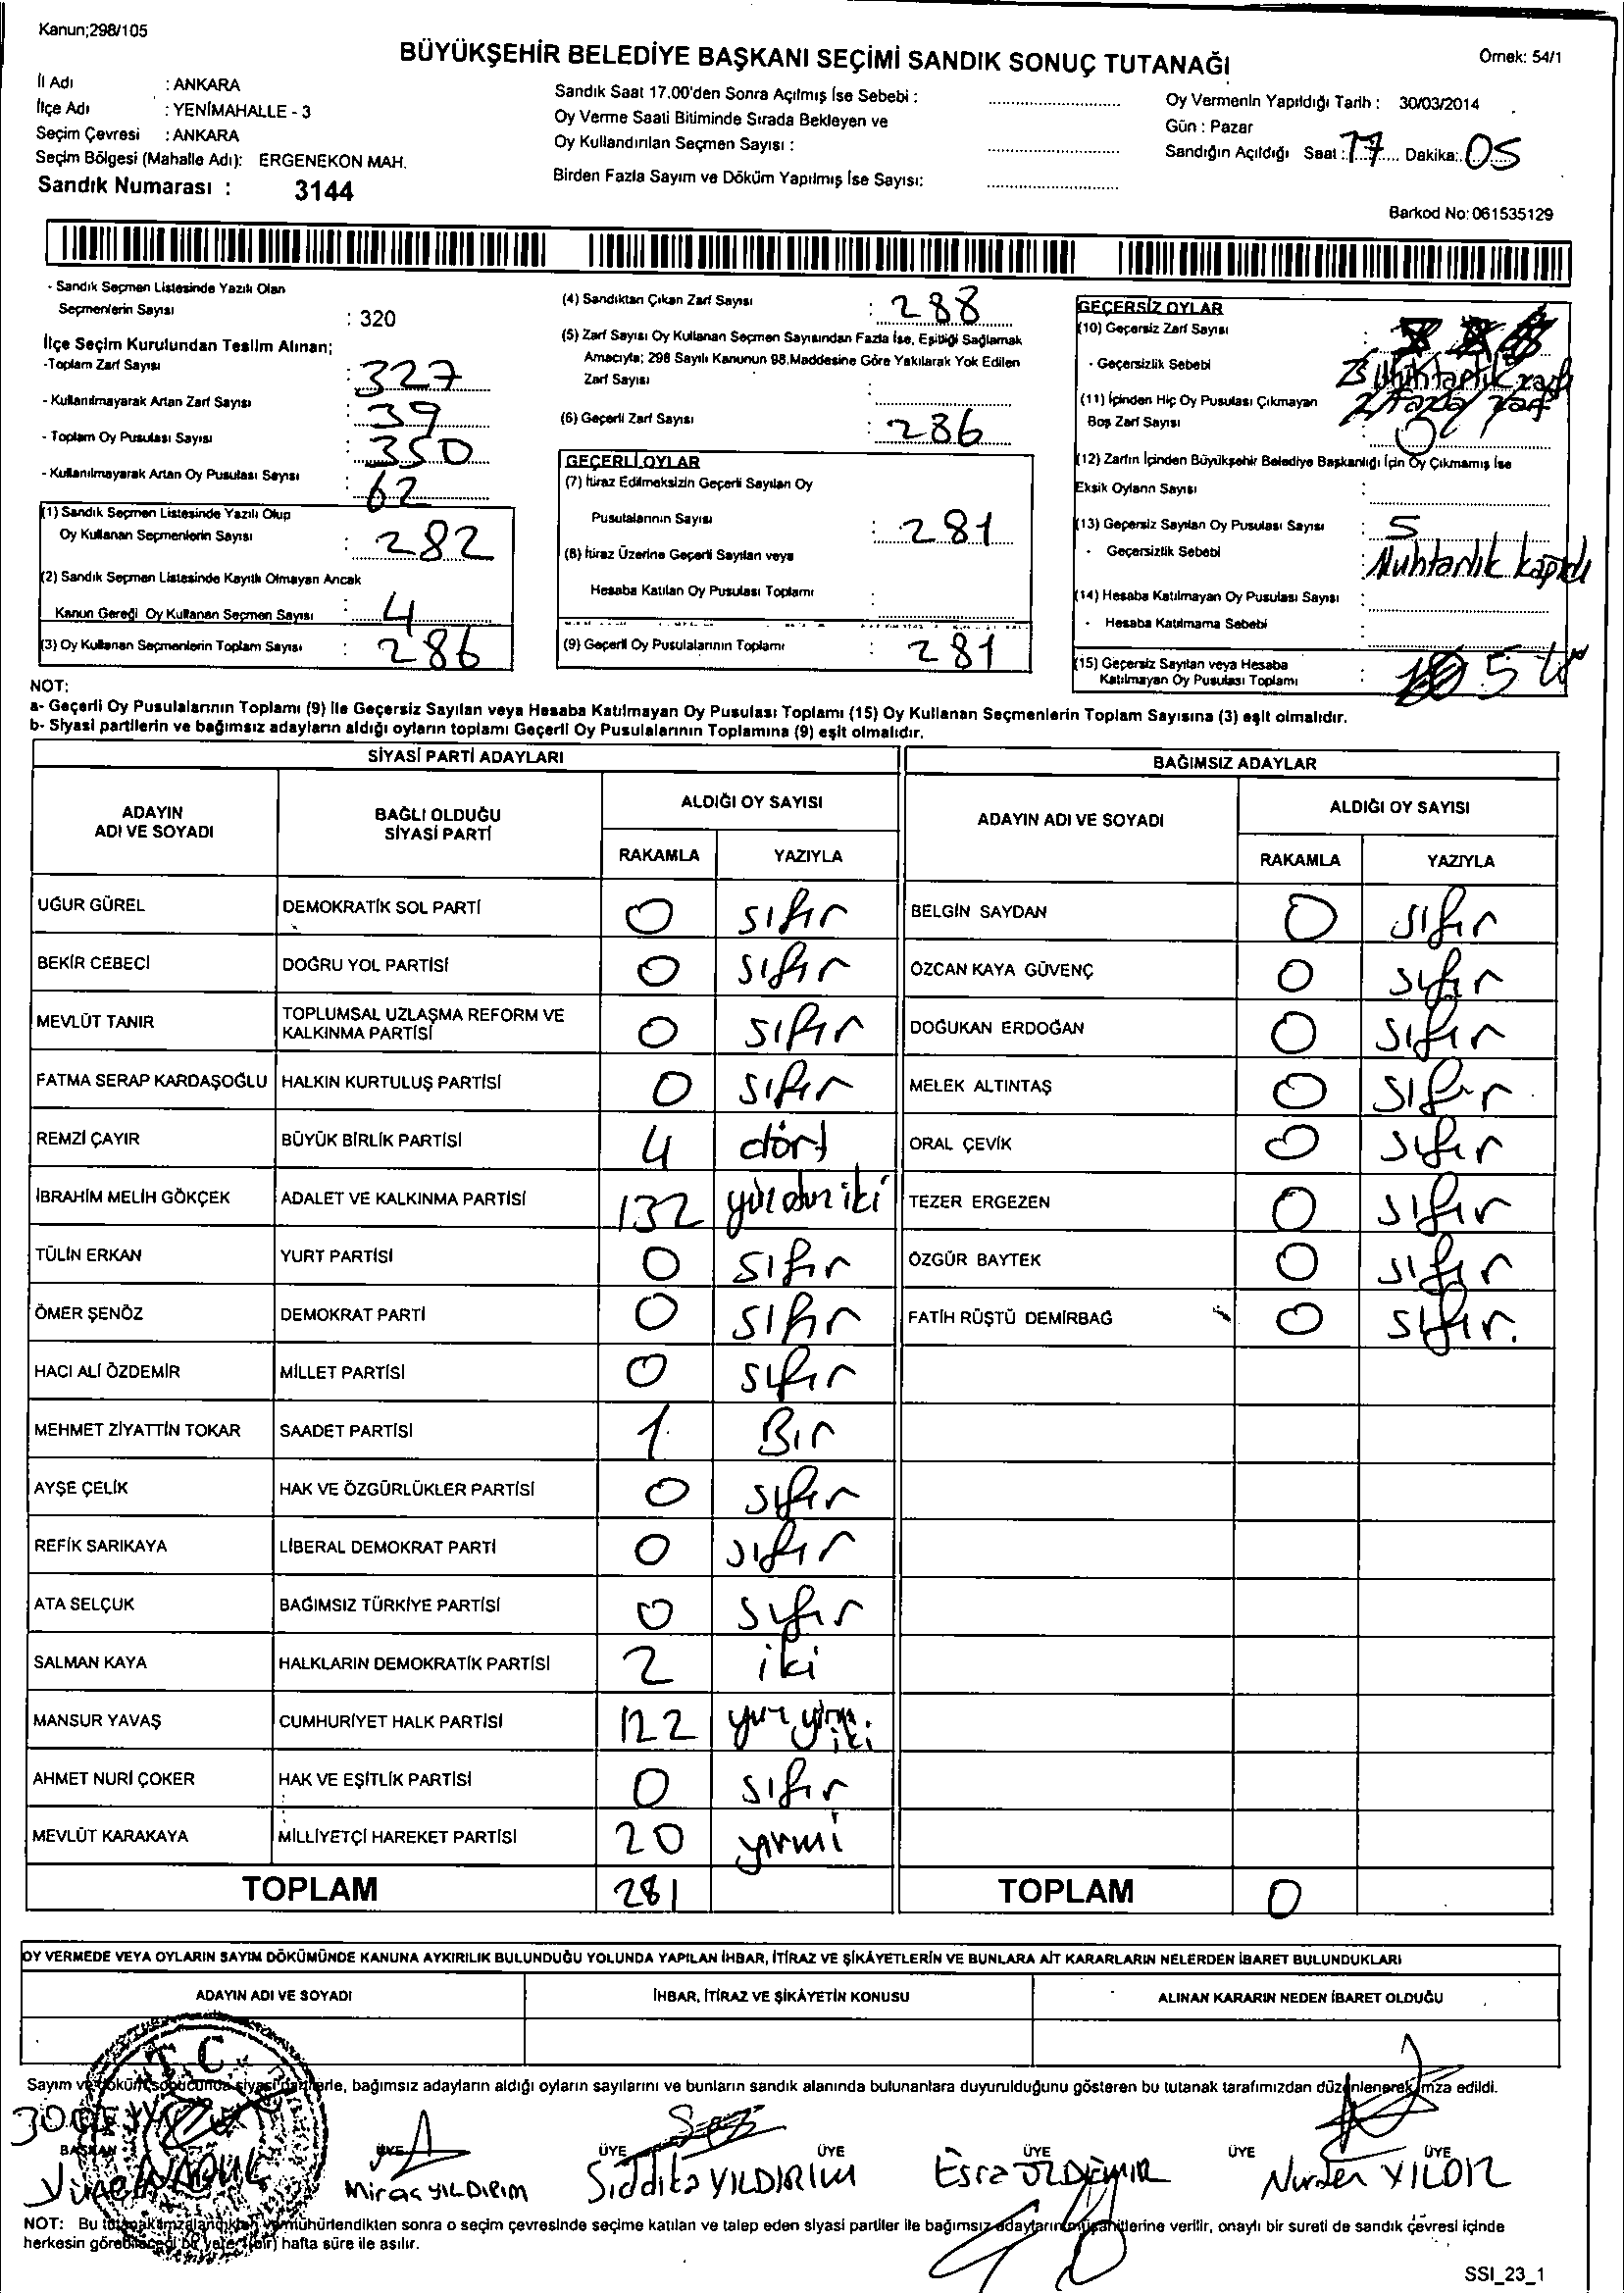 Kanun;298/105
BÜYÜKŞEHİR BELEDİYE BAŞKANI SEÇİMİ SANDIK SONUÇ TUTANAĞI
Örnek: 54/1
İl Adı : ANKARA
İlçe Adı : YENİMAHALLE - 3
Seçim Çevresi : ANKARA
Seçim Bölgesi (Mahalle Adı): ERGENEKON MAH.
Sandık Numarası : 3144
Sandık Saat 17.00'den Sonra Açılmış İse Sebebi :
Oy Verme Saati Bitiminde Sırada Bekleyen ve
Oy Kullandırılan Seçmen Sayısı :
Birden Fazla Sayım ve Döküm Yapılmış İse Sayısı:
Oy Vermenin Yapıldığı Tarih : 30/03/2014
Gün : Pazar
Sandığın Açıldığı Saat : 17 Dakika: 05
Barkod No: 061535129
- Sandık Seçmen Listesinde Yazılı Olan
Seçmenlerin Sayısı : 320
İlçe Seçim Kurulundan Teslim Alınan;
-Toplam Zarf Sayısı : 327
- Kullanılmayarak Artan Zarf Sayısı : 39
- Toplam Oy Pusulası Sayısı : 350
- Kullanılmayarak Artan Oy Pusulası Sayısı : 62
(1) Sandık Seçmen Listesinde Yazılı Olup
Oy Kullanan Seçmenlerin Sayısı : 282
(2) Sandık Seçmen Listesinde Kayıtlı Olmayan Ancak
Kanun Gereği Oy Kullanan Seçmen Sayısı : 4
(3) Oy Kullanan Seçmenlerin Toplam Sayısı : 286
(4) Sandıktan Çıkan Zarf Sayısı : 288
(5) Zarf Sayısı Oy Kullanan Seçmen Sayısından Fazla İse, Eşitliği Sağlamak
Amacıyla; 298 Sayılı Kanunun 98.Maddesine Göre Yakılarak Yok Edilen
Zarf Sayısı :
(6) Geçerli Zarf Sayısı : 286
GEÇERLİ OYLAR
(7) İtiraz Edilmeksizin Geçerli Sayılan Oy
Pusulalarının Sayısı : 281
(8) İtiraz Üzerine Geçerli Sayılan veya
Hesaba Katılan Oy Pusulası Toplamı :
(9) Geçerli Oy Pusulalarının Toplamı : 281
GEÇERSİZ OYLAR
(10) Geçersiz Zarf Sayısı :
- Geçersizlik Sebebi
Muhtarlık
2 fazla zarf
(11) İçinden Hiç Oy Pusulası Çıkmayan
Boş Zarf Sayısı : 0
(12) Zarfın İçinden Büyükşehir Belediye Başkanlığı İçin Oy Çıkmamış İse
Eksik Oyların Sayısı :
(13) Geçersiz Sayılan Oy Pusulası Sayısı : 5
- Geçersizlik Sebebi : Muhtarlık
(14) Hesaba Katılmayan Oy Pusulası Sayısı :
- Hesaba Katılmama Sebebi :
(15) Geçersiz Sayılan veya Hesaba
Katılmayan Oy Pusulası Toplamı : 5
NOT:
a- Geçerli Oy Pusulalarının Toplamı (9) İle Geçersiz Sayılan veya Hesaba Katılmayan Oy Pusulası Toplamı (15) Oy Kullanan Seçmenlerin Toplam Sayısına (3) eşit olmalıdır.
b- Siyasi partilerin ve bağımsız adayların aldığı oyların toplamı Geçerli Oy Pusulalarının Toplamına (9) eşit olmalıdır.
SİYASİ PARTİ ADAYLARI
ADAYIN ADI VE SOYADI BAĞLI OLDUĞU SİYASİ PARTİ ALDIĞI OY SAYISI
RAKAMLA YAZIYLA
UĞUR GÜREL DEMOKRATİK SOL PARTİ 0 sıfır
BEKİR CEBECİ DOĞRU YOL PARTİSİ 0 sıfır
MEVLÜT TANIR TOPLUMSAL UZLAŞMA REFORM VE KALKINMA PARTİSİ 0 sıfır
FATMA SERAP KARDAŞOĞLU HALKIN KURTULUŞ PARTİSİ 0 sıfır
REMZİ ÇAYIR BÜYÜK BİRLİK PARTİSİ 4 dört
İBRAHİM MELİH GÖKÇEK ADALET VE KALKINMA PARTİSİ 132
TÜLİN ERKAN YURT PARTİSİ 0 sıfır
ÖMER ŞENÖZ DEMOKRAT PARTİ 0 sıfır
HACI ALİ ÖZDEMİR MİLLET PARTİSİ 0 sıfır
MEHMET ZİYATTİN TOKAR SAADET PARTİSİ 1 Bir
AYŞE ÇELİK HAK VE ÖZGÜRLÜKLER PARTİSİ 0 sıfır
REFİK SARIKAYA LİBERAL DEMOKRAT PARTİ 0 sıfır
ATA SELÇUK BAĞIMSIZ TÜRKİYE PARTİSİ 0 sıfır
SALMAN KAYA HALKLARIN DEMOKRATİK PARTİSİ 2 iki
MANSUR YAVAŞ CUMHURİYET HALK PARTİSİ 122 yüz yirmi iki
AHMET NURİ ÇOKER HAK VE EŞİTLİK PARTİSİ 0 sıfır
MEVLÜT KARAKAYA MİLLİYETÇİ HAREKET PARTİSİ 20 yirmi
TOPLAM 281
BAĞIMSIZ ADAYLAR
ADAYIN ADI VE SOYADI ALDIĞI OY SAYISI
RAKAMLA YAZIYLA
BELGİN SAYDAN 0 sıfır
ÖZCAN KAYA GÜVENÇ 0 sıfır
DOĞUKAN ERDOĞAN 0 sıfır
MELEK ALTINTAŞ 0 sıfır
ORAL ÇEVİK 0 sıfır
TEZER ERGEZEN 0 sıfır
ÖZGÜR BAYTEK 0 sıfır
FATİH RÜŞTÜ DEMİRBAĞ 0 sıfır.
TOPLAM 0
OY VERMEDE VEYA OYLARIN SAYIM DÖKÜMÜNDE KANUNA AYKIRILIK BULUNDUĞU YOLUNDA YAPILAN İHBAR, İTİRAZ VE ŞİKÂYETLERİN VE BUNLARA AİT KARARLARIN NELERDEN İBARET BULUNDUKLARI
ADAYIN ADI VE SOYADI İHBAR, İTİRAZ VE ŞİKÂYETİN KONUSU ALINAN KARARIN NEDEN İBARET OLDUĞU
T.C.
Sayım ve döküm sonucunda siyasi partilerle, bağımsız adayların aldığı oyların sayılarını ve bunların sandık alanında bulunanlara duyurulduğunu gösteren bu tutanak tarafımızdan düzenlenerek imza edildi.
BAŞKAN ÜYE ÜYE ÜYE ÜYE ÜYE ÜYE
Miraç YILDIRIM Sıddıka YILDIRIM Esra ÖZDEMİR Nurten YILDIZ
NOT: Bu tutanak imzalandıktan ve mühürlendikten sonra o seçim çevresinde seçime katılan ve talep eden siyasi partiler ile bağımsız adayların müşahitlerine verilir, onaylı bir sureti de sandık çevresi içinde
herkesin görebileceği bir yere 1 (bir) hafta süre ile asılır.
SSI_23_1